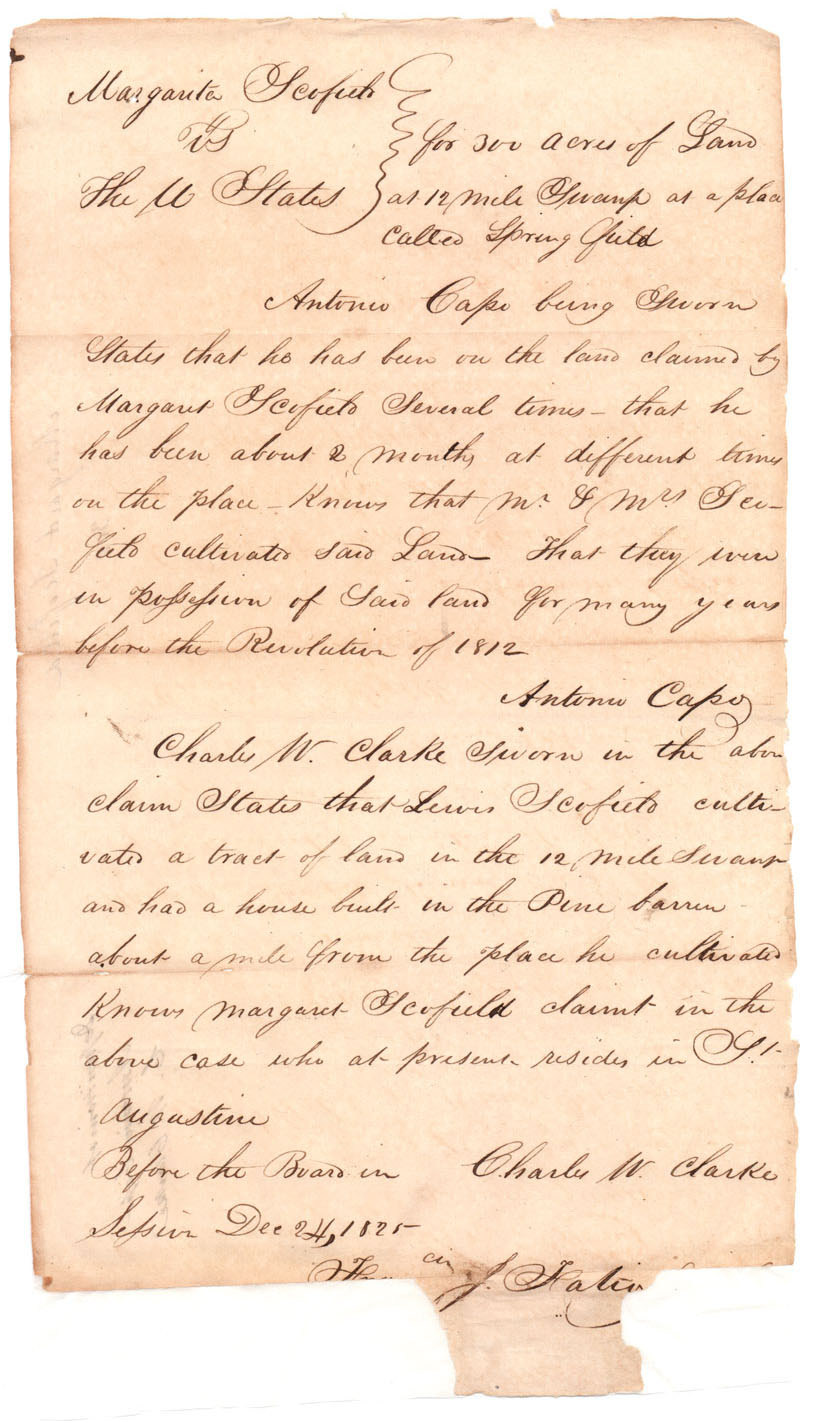 Margarita Scofield
VS
for 300 acres of Land
The U States
at 12 mile Swamp at a place
called Spring field
Antonio Capo being Sworn
States that he has been on the land claimed by
Margaret Scofield Several times – that he
has been about 2 months at different times
on the place – Knows that Mr. & Mrs Sco–
field cultivated said Land – That they were
in possession of Said land for many years
before the Revolution of 1812
Antonio Capo
Charles W. Clarke Sworn in the above
claim States that Lewis Scofield culti–
vated a tract of land in the 12 mile Swamp
and had a house built in the Pine barren
about a mile from the place he cultivated
Knows Margaret Scofield claimt in the
above case who at present resides in St
Augustine
Before the Board in
Charles W. Clarke
Session Dec 24, 1825
J. Fatio